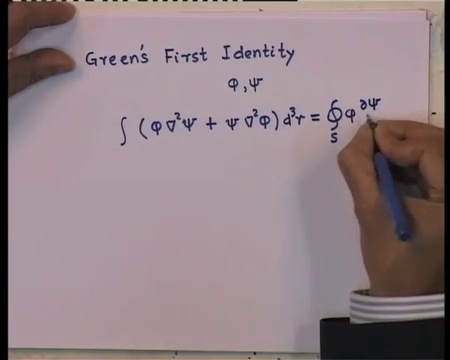 Green's First Identity
φ, ψ
∫ (φ ∇²ψ + ψ ∇²φ) d³r = ∮_S φ ∂ψ